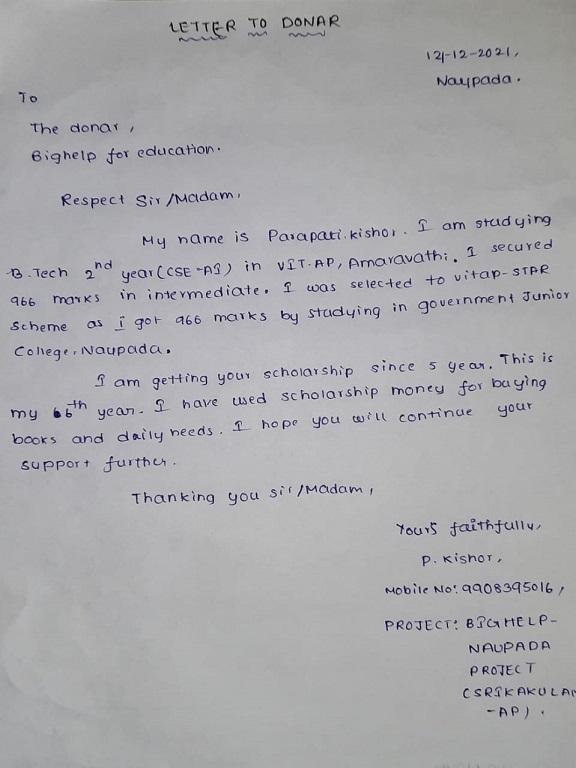 LETTER TO DONAR
12-12-2021,
Naupada.
To
The donar,
Bighelp for education.
Respect Sir/Madam,
My name is Parapati.kishor. I am studying
B.Tech 2nd year(CSE-AI) in VIT-AP, Amaravathi. I secured
966 marks in intermediate. I was selected to vitap-STAR
Scheme as I got 966 marks by studying in government Junior
College, Naupada.
I am getting your scholarship since 5 year. This is
my 6th year. I have used scholarship money for buying
books and daily needs. I hope you will continue your
support further.
Thanking you sir/Madam,
Yours faithfully,
P. Kishor,
Mobile No: 9908395016,
PROJECT: BIGHELP-
NAUPADA
PROJECT
(SRIKAKULAM
-AP).